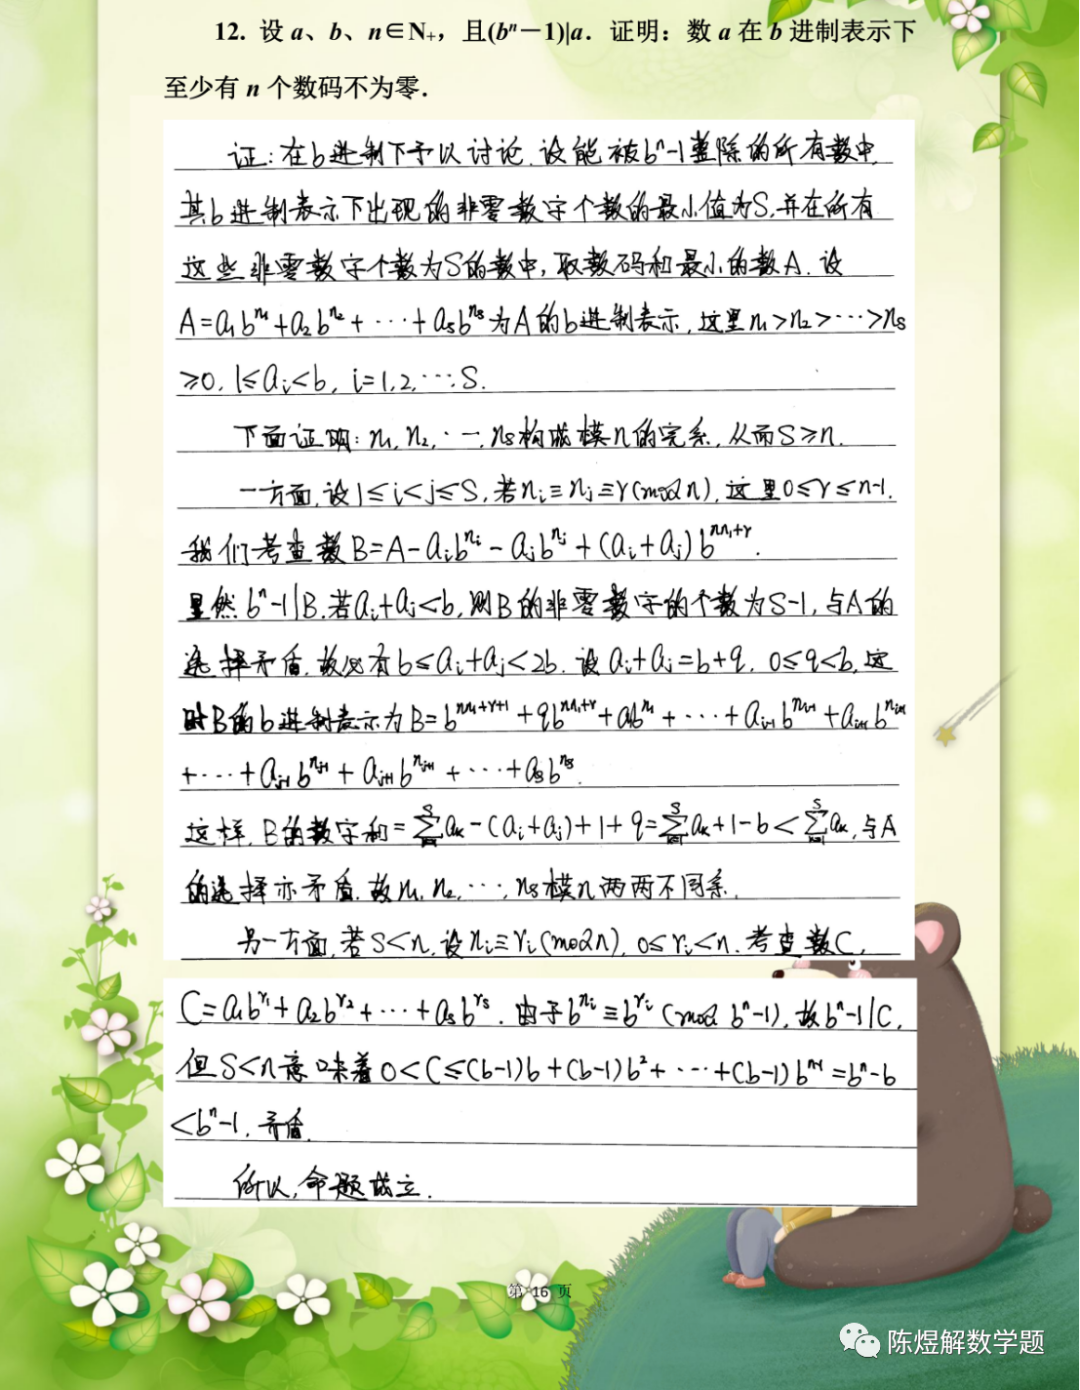 12. 设 a、b、n∈N₊，且(bⁿ－1)|a．证明：数 a 在 b 进制表示下
至少有 n 个数码不为零．
证：在b进制下予以讨论.设能被bⁿ-1整除的所有数中,
其b进制表示下出现的非零数字个数的最小值为S.并在所有
这些非零数字个数为S的数中,取数码和最小的数A.设
A=a₁b^{n₁}+a₂b^{n₂}+⋯+aₛb^{nₛ}为A的b进制表示,这里n₁>n₂>⋯>nₛ
≥0, 1≤aᵢ<b, i=1,2,⋯,S.
下面证明:n₁,n₂,⋯,nₛ构成模n的完系,从而S≥n.
一方面,设1≤i<j≤S,若nᵢ≡nⱼ≡r(mod n),这里0≤r≤n-1.
我们考查数B=A-aᵢb^{nᵢ}-aⱼb^{nⱼ}+(aᵢ+aⱼ)b^{nn₁+r}.
显然bⁿ-1|B.若aᵢ+aⱼ<b,则B的非零数字的个数为S-1,与A的
选择矛盾.故必有b≤aᵢ+aⱼ<2b.设aᵢ+aⱼ=b+q, 0≤q<b,这
时B的b进制表示为B=b^{nn₁+r+1}+qb^{nn₁+r}+a₁b^{n₁}+⋯+a_{i-1}b^{n_{i-1}}+a_{i+1}b^{n_{i+1}}
+⋯+a_{j-1}b^{n_{j-1}}+a_{j+1}b^{n_{j+1}}+⋯+aₛb^{nₛ}.
这样,B的数字和=∑_{k=1}^{S}aₖ-(aᵢ+aⱼ)+1+q=∑_{k=1}^{S}aₖ+1-b<∑_{k=1}^{S}aₖ,与A
的选择亦矛盾.故n₁,n₂,⋯,nₛ模n两两不同余.
另一方面,若S<n,设nᵢ≡rᵢ(mod n), 0≤rᵢ<n.考查数C,
C=a₁b^{r₁}+a₂b^{r₂}+⋯+aₛb^{rₛ}.由于b^{nᵢ}≡b^{rᵢ}(mod bⁿ-1),故bⁿ-1|C.
但S<n意味着0<C≤(b-1)b+(b-1)b²+⋯+(b-1)b^{n-1}=bⁿ-b
<bⁿ-1,矛盾.
所以,命题成立.
第 16 页
陈煜解数学题